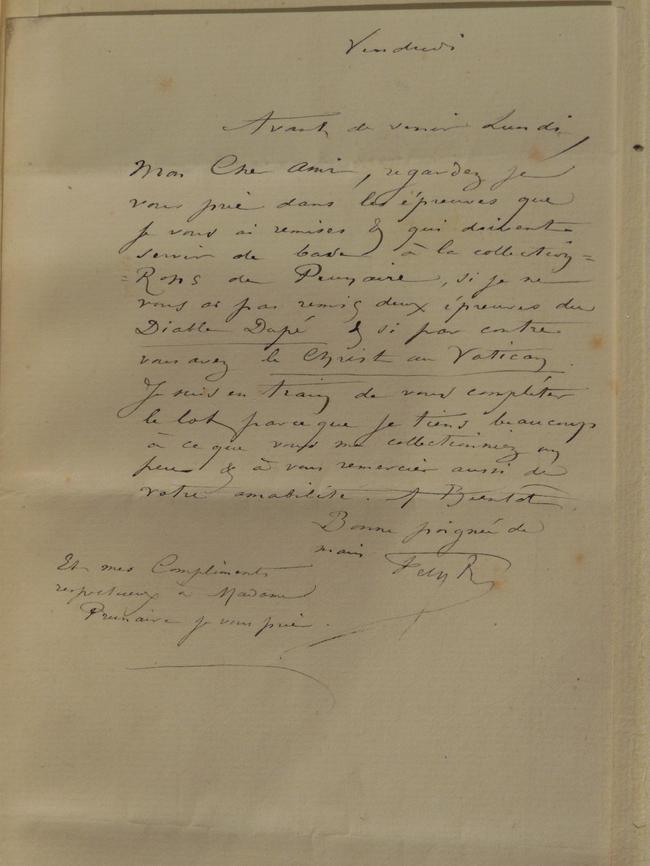 Vendredi
Avant de venir Lundi,
Mon Cher Ami, regardez je
vous prie dans les épreuves que
je vous ai remises & qui doivent
servir de base à la collection=
=Rops de Prunaire, si je ne
vous ai pas remis deux épreuves du
Diable Dupé & si par contre
vous avez le Christ au Vatican
Je suis en train de vous compléter
le lot parceque je tiens beaucoup
à ce que vous me collectionniez un
peu & à vous remercier aussi de
votre amabilité. A Bientôt
Bonne poignée de
main
Et mes Compliments
respectueux à Madame
Prunaire je vous prie.